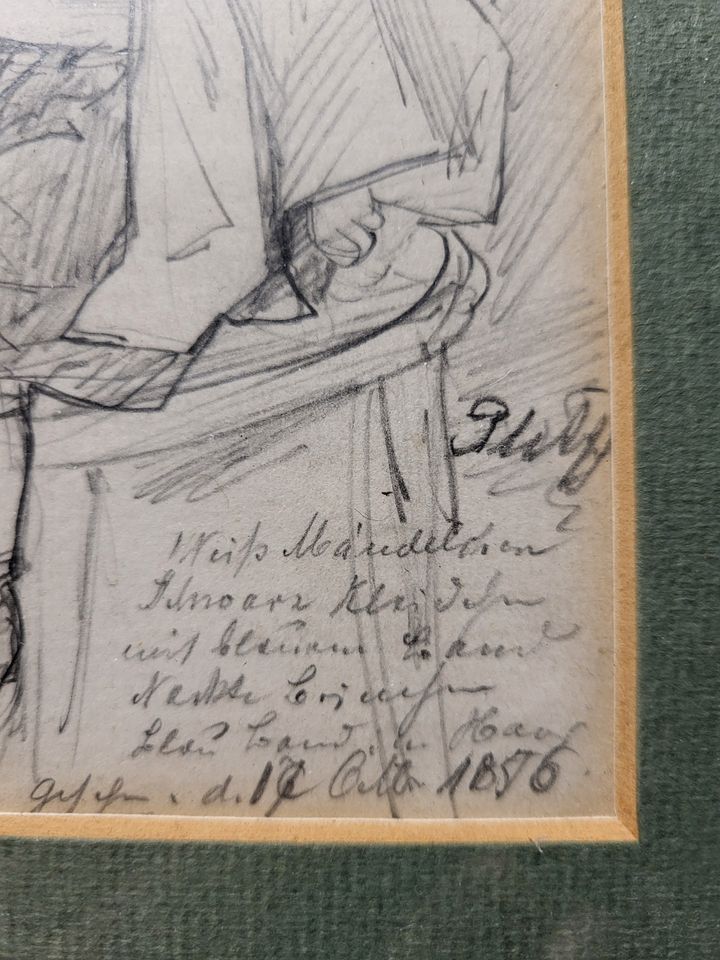 Weiß Mändelchen
Schwarz Kleidchen
mit blauem Band
Nackte Beinchen
blau Band im Haar
gesehn. d. Octbr 1856